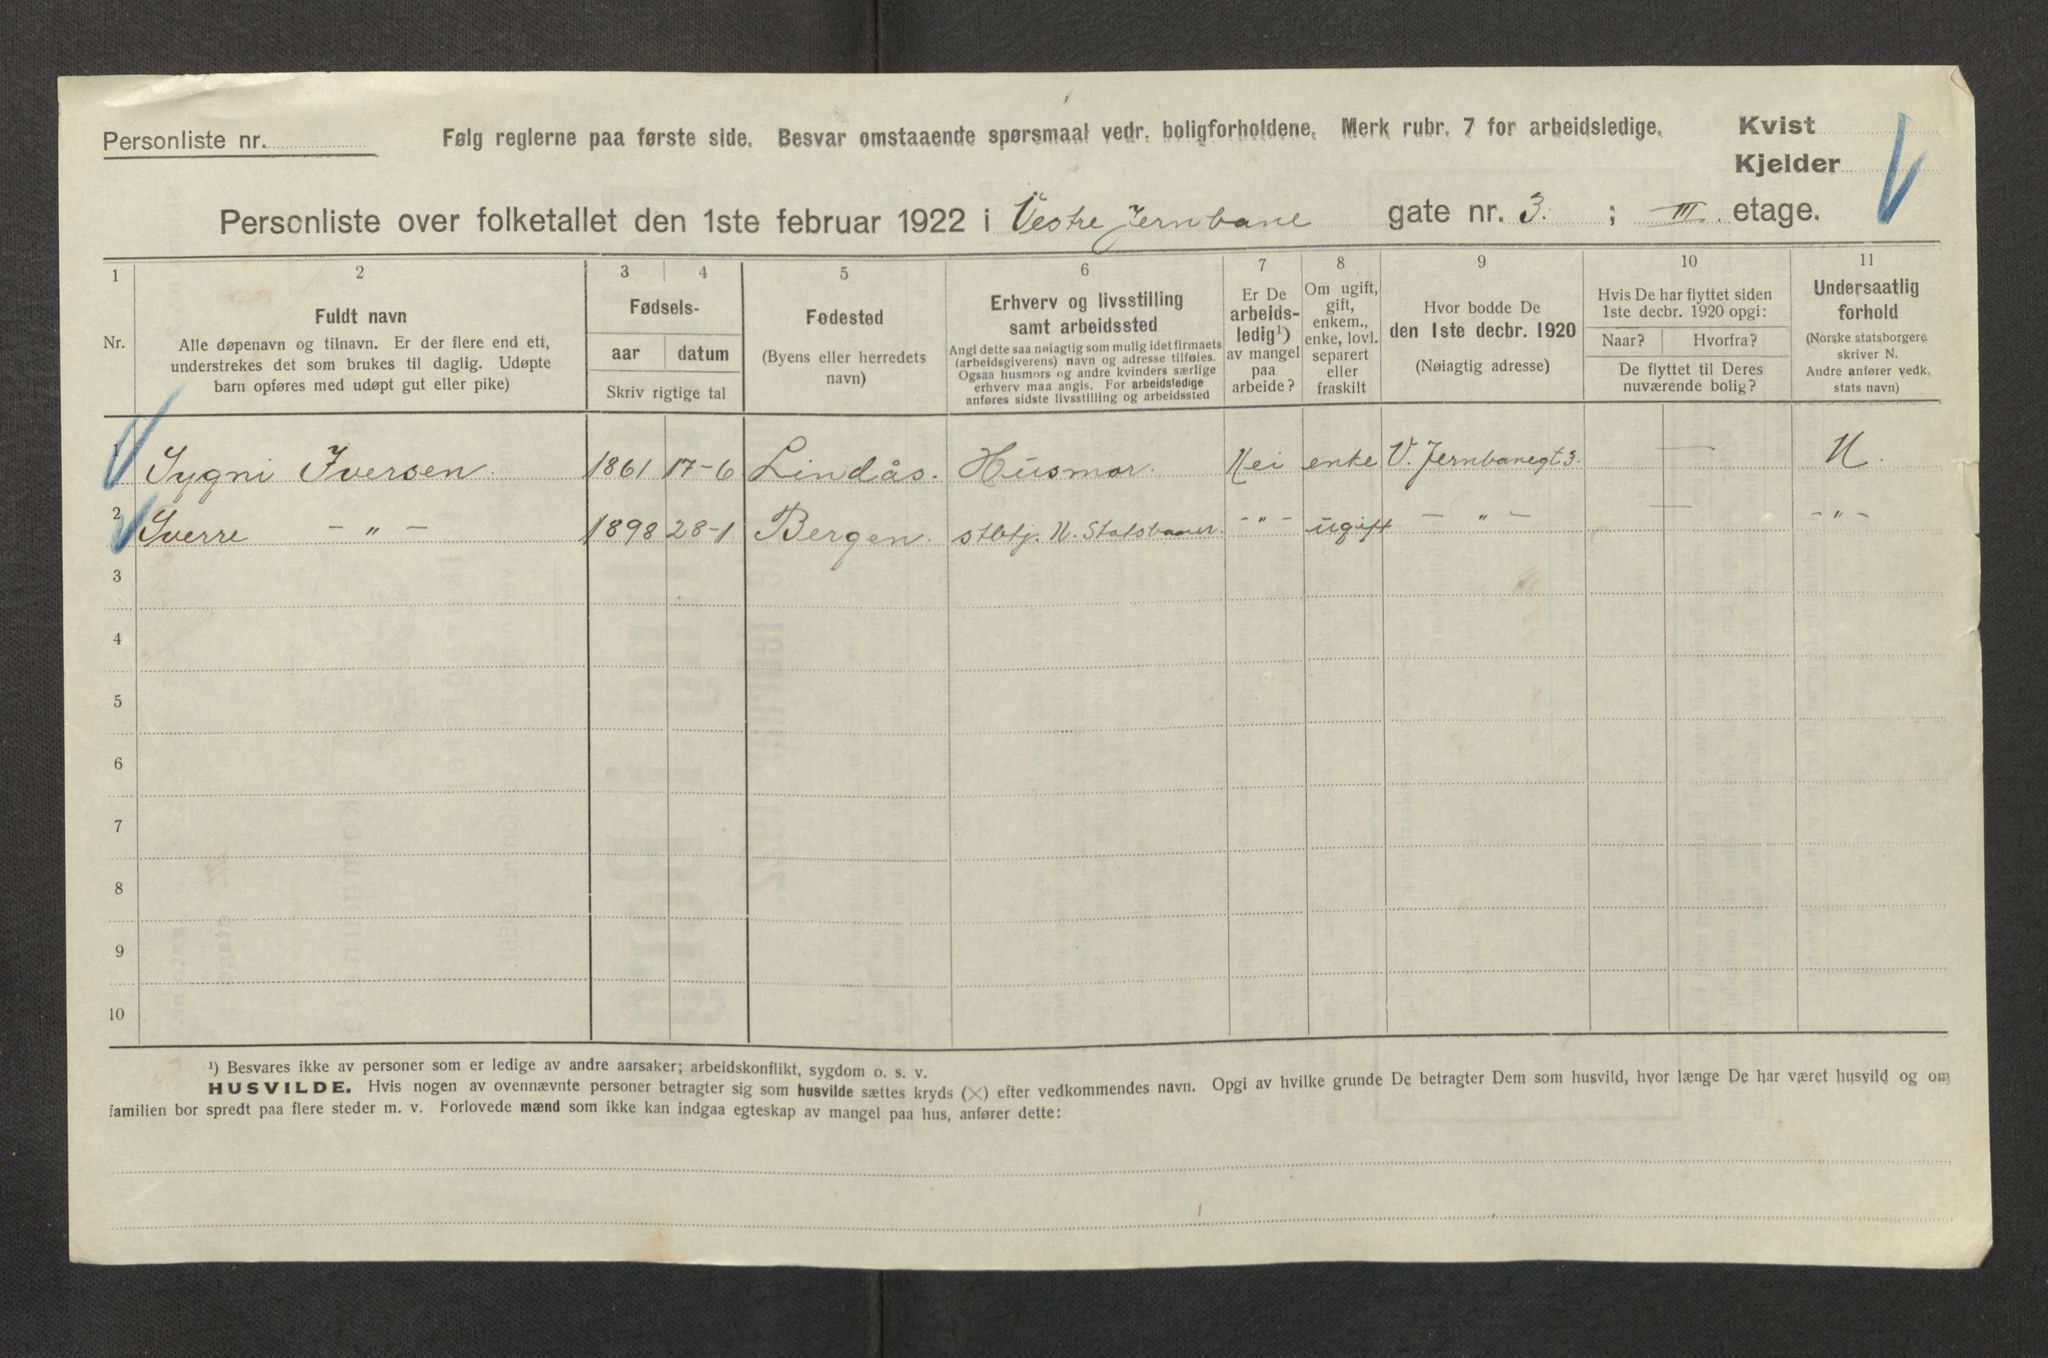 Personliste nr.
Følg reglerne paa første side. Besvar omstaaende spørsmaal vedr. boligforholdene. Merk rubr. 7 for arbeidsledige.
Kvist
Kjelder
Personliste over folketallet den 1ste februar 1922 i Vestre Jernbane gate nr. 3. ; III. etage.
1 2 3 4 5 6 7 8 9 10 11
Nr.
Fuldt navn
Alle døpenavn og tilnavn. Er der flere end ett,
understrekes det som brukes til daglig. Udøpte
barn opføres med udøpt gut eller pike)
Fødsels-
aar datum
Skriv rigtige tal
Fødested
(Byens eller herredets
navn)
Erhverv og livsstilling
samt arbeidssted
Angi dette saa nøiagtig som mulig idet firmaets
(arbeidsgiverens) navn og adresse tilføies.
Ogsaa husmors og andre kvinders særlige
erhverv maa angis. For arbeidsledige
anføres sidste livsstilling og arbeidssted
Er De
arbeids-
ledig¹)
av mangel
paa
arbeide?
Om ugift,
gift,
enkem.,
enke, lovl.
separert
eller
fraskilt
Hvor bodde De
den 1ste decbr. 1920
(Nøiagtig adresse)
Hvis De har flyttet siden
1ste decbr. 1920 opgi:
Naar? Hvorfra?
De flyttet til Deres
nuværende bolig?
Undersaatlig
forhold
(Norske statsborgere
skriver N.
Andre anfører vedk.
stats navn)
1 Sygni Iversen 1861 17-6 Lindås. Husmor. Nei enke V. Jernbanegt 3. — N.
2 Sverre - " - 1898 28-1 Bergen. stbtj. N. Statsbaner. - " - ugift - " - — - " -
3
4
5
6
7
8
9
10
¹) Besvares ikke av personer som er ledige av andre aarsaker; arbeidskonflikt, sygdom o. s. v.
HUSVILDE. Hvis nogen av ovennævnte personer betragter sig som husvilde sættes kryds (×) efter vedkommendes navn. Opgi av hvilke grunde De betragter Dem som husvild, hvor længe De har været husvild og om
familien bor spredt paa flere steder m. v. Forlovede mænd som ikke kan indgaa egteskap av mangel paa hus, anfører dette: